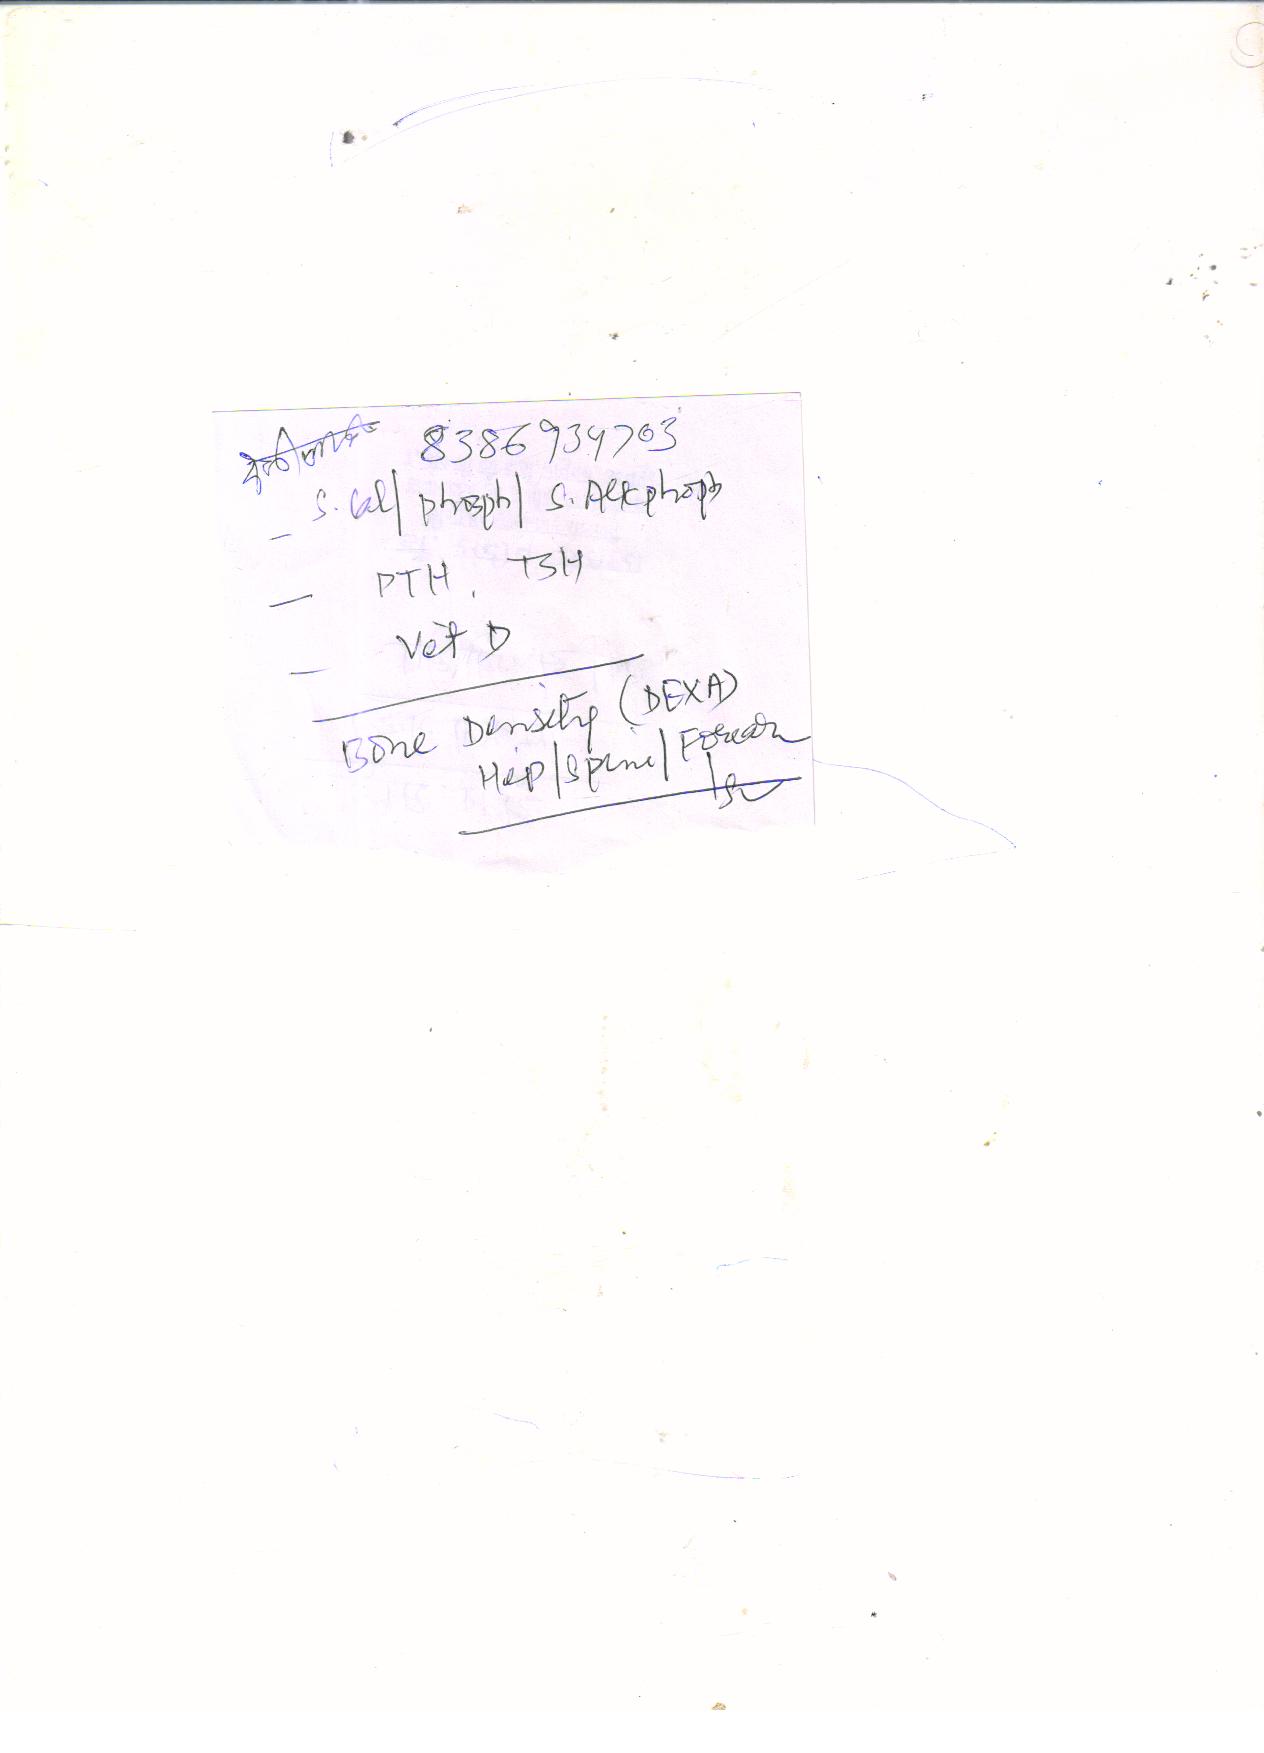 8386934703
S. Cal/ phosph/ S. Alkphosph
PTH, TSH
Vit D
Bone Density (DEXA)
Hip/Spine/Forearm